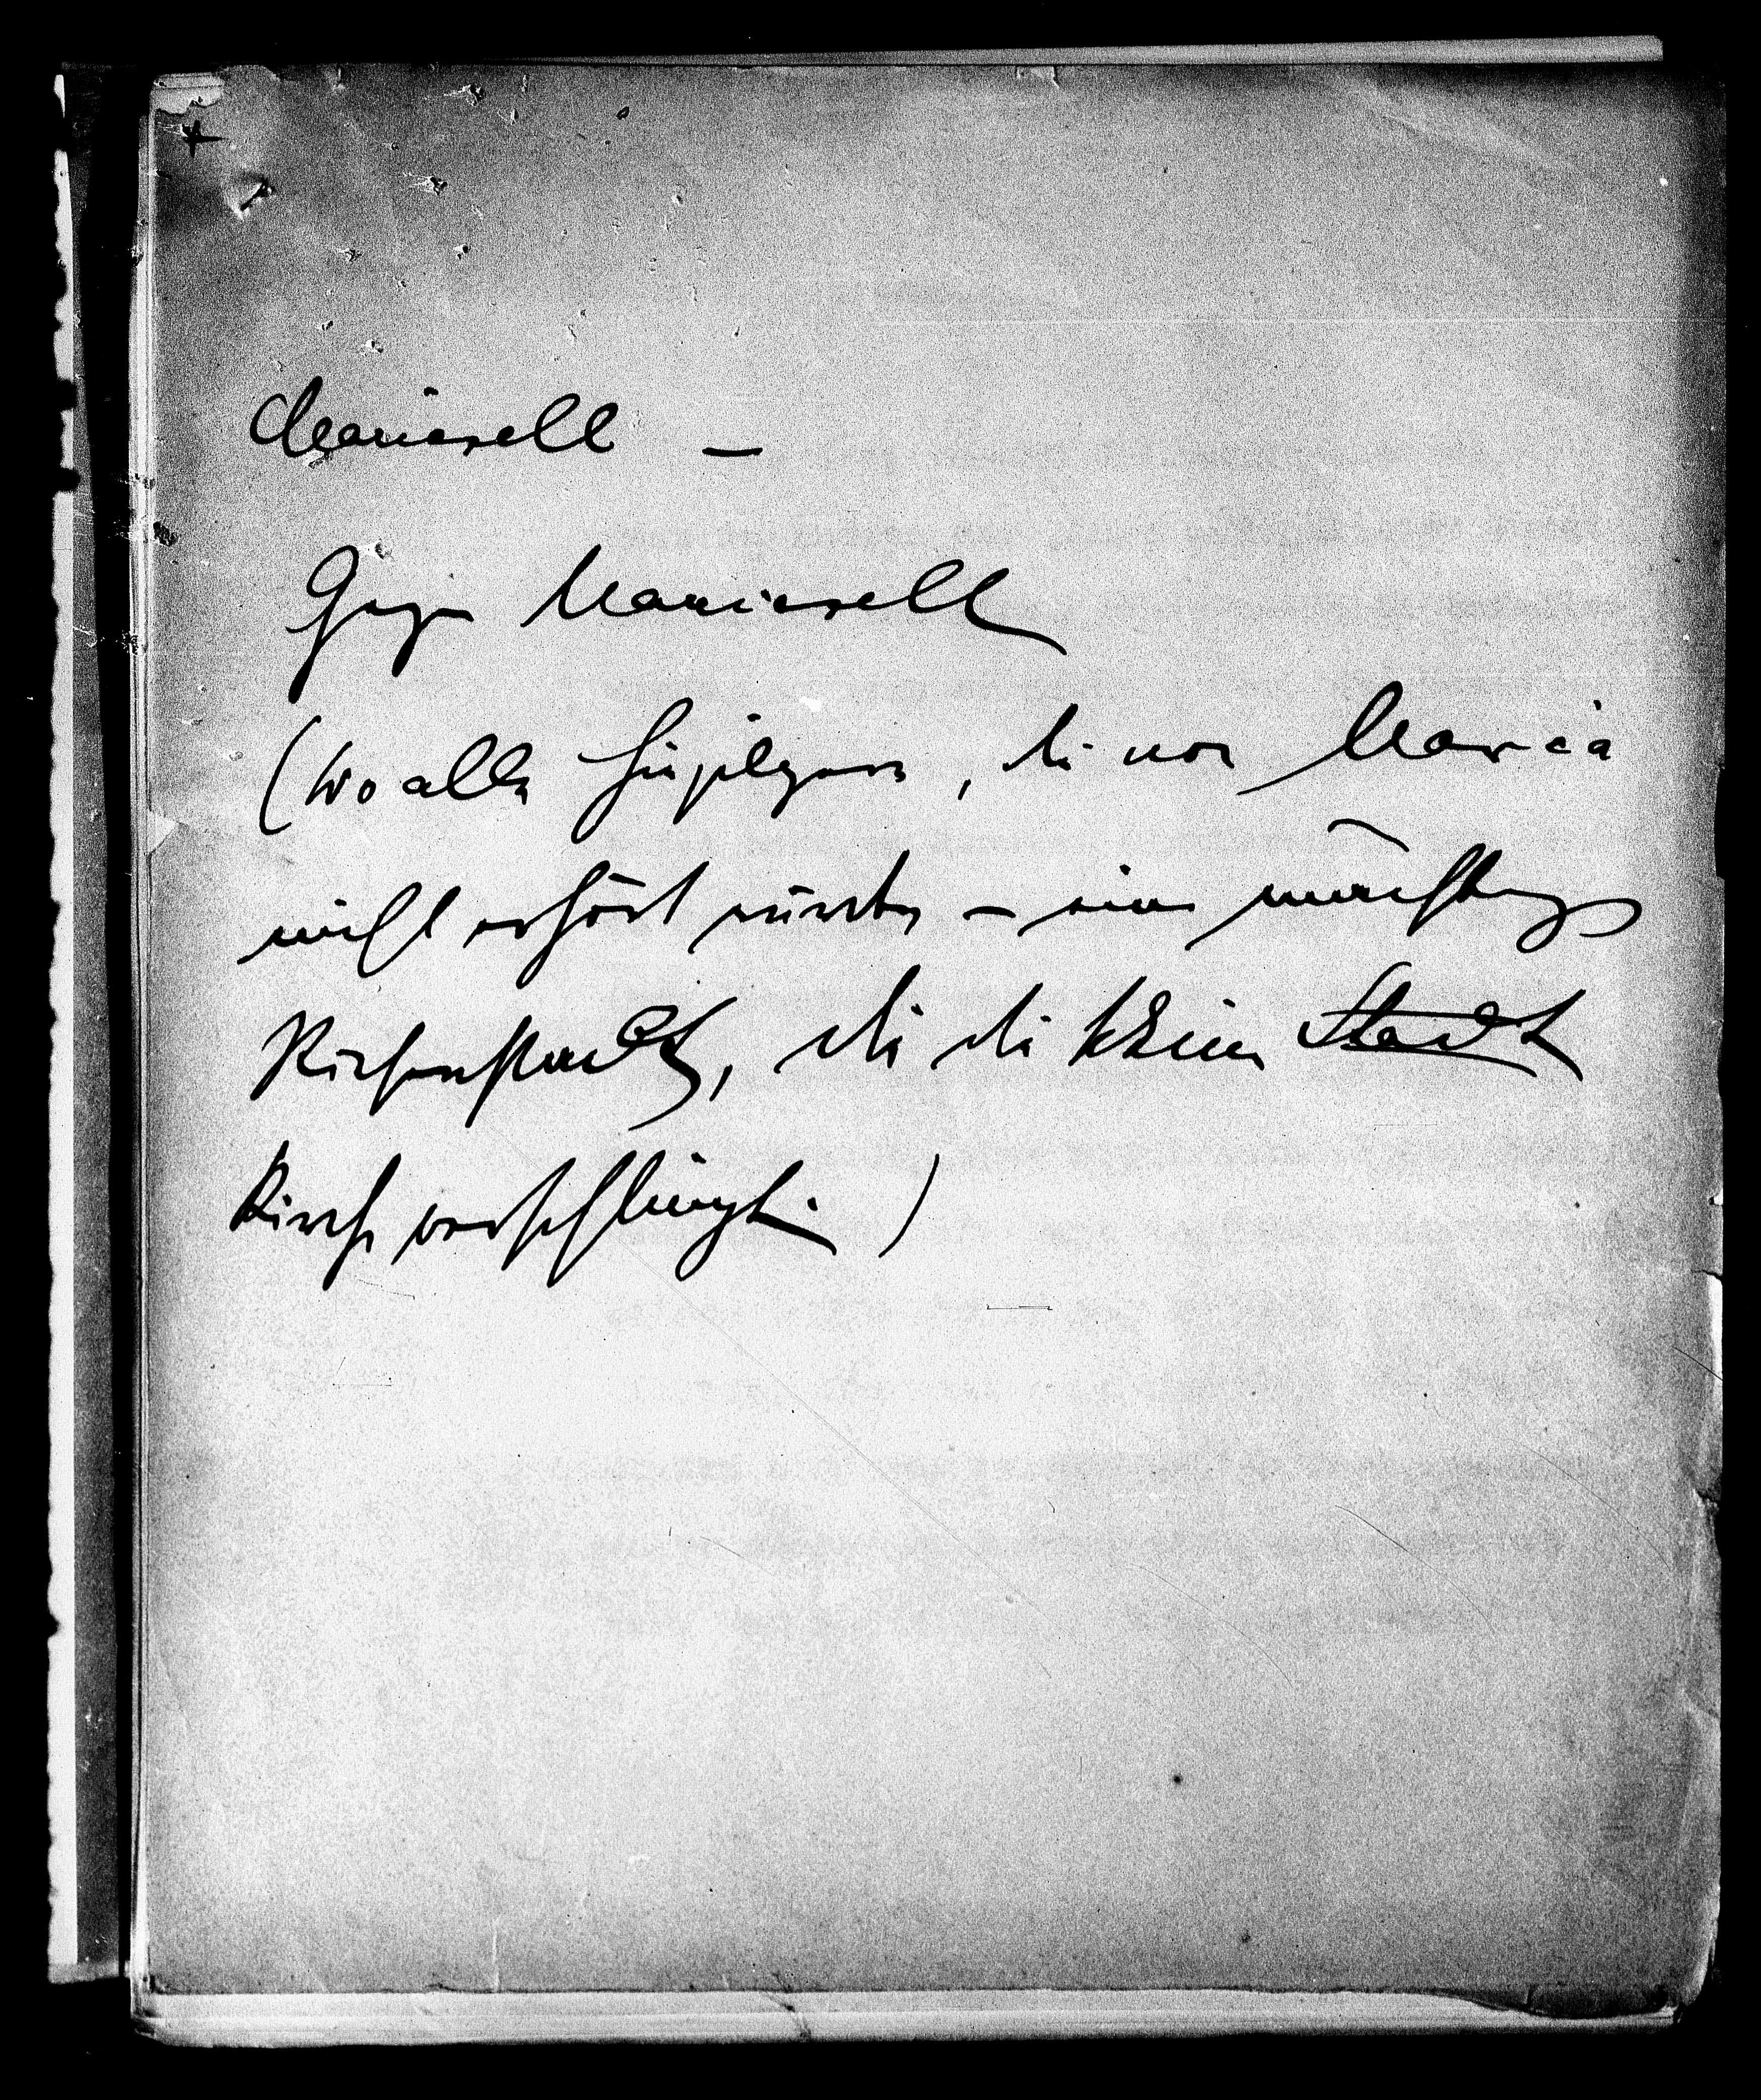 Mariazell –
Gegen Mariazell
(wo alle hinpilgern, die von Maria
nicht erhört wurden – eine mächtige
Kirchenstadt, die die kleine Stadt
Kirche verschlingt.)